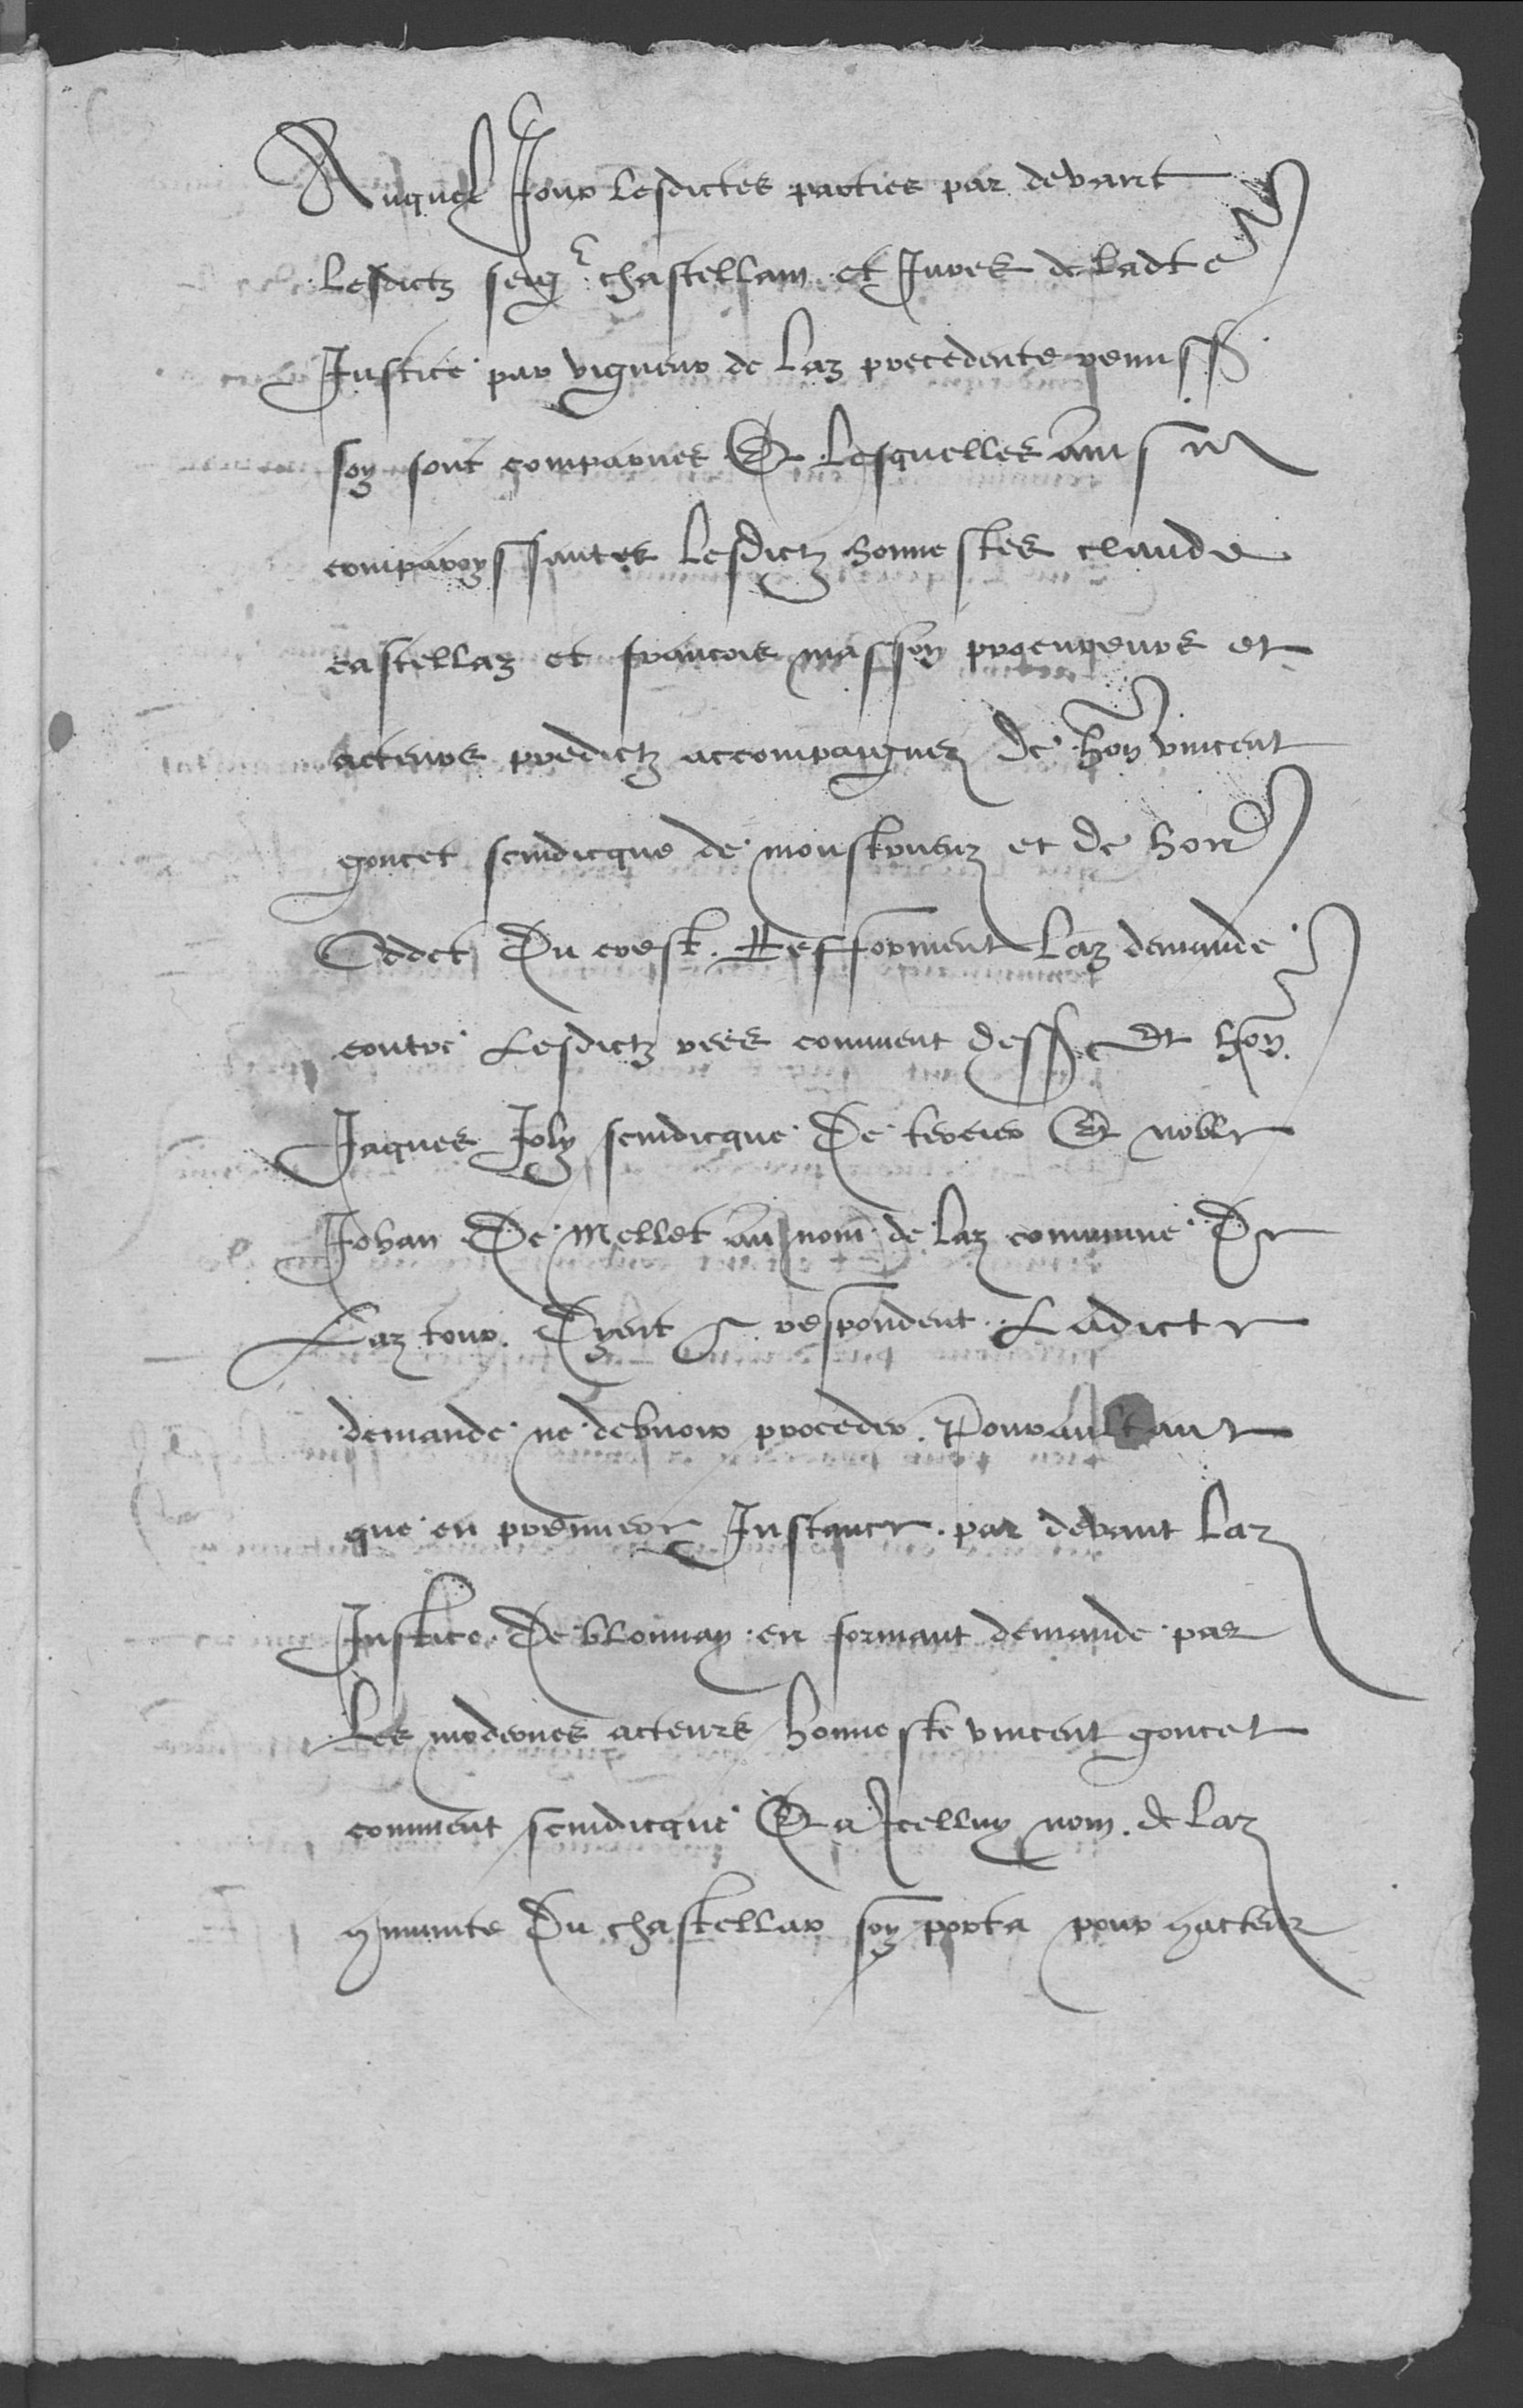 Auquel Jour lesdictes parties par devant
lesdictz seigr chastellain et Jures de ladte
Justice par vigueur de laz precedente remiss
soy sont comparues Et lesquelles ainsin
comparoyssantes lesdictz honnestes claude
castellaz et francois masson procureurs et
acteurs predictz accompaignez de hon vincent
goncet scindicque de monstruenz et de hon
Oddet Du crest. Refforment laz demande
contre Lesdictz rees comment dess Et hon.
Jaques Joly scindicque De tercier Et noble
Johan De Mellet au nom de laz commune De
Laz tour. Dyent & respondent Ladicte
demande ne debvoir proceder. Pouraultant
que en premiere Instance par devant laz
Justice De blonnay en formant demande par
Les modernes acteurs honneste vincent goncet
comment scindicque Et a Jcelluy nom de laz
9munite Du chastellar soy porta pour hacteur